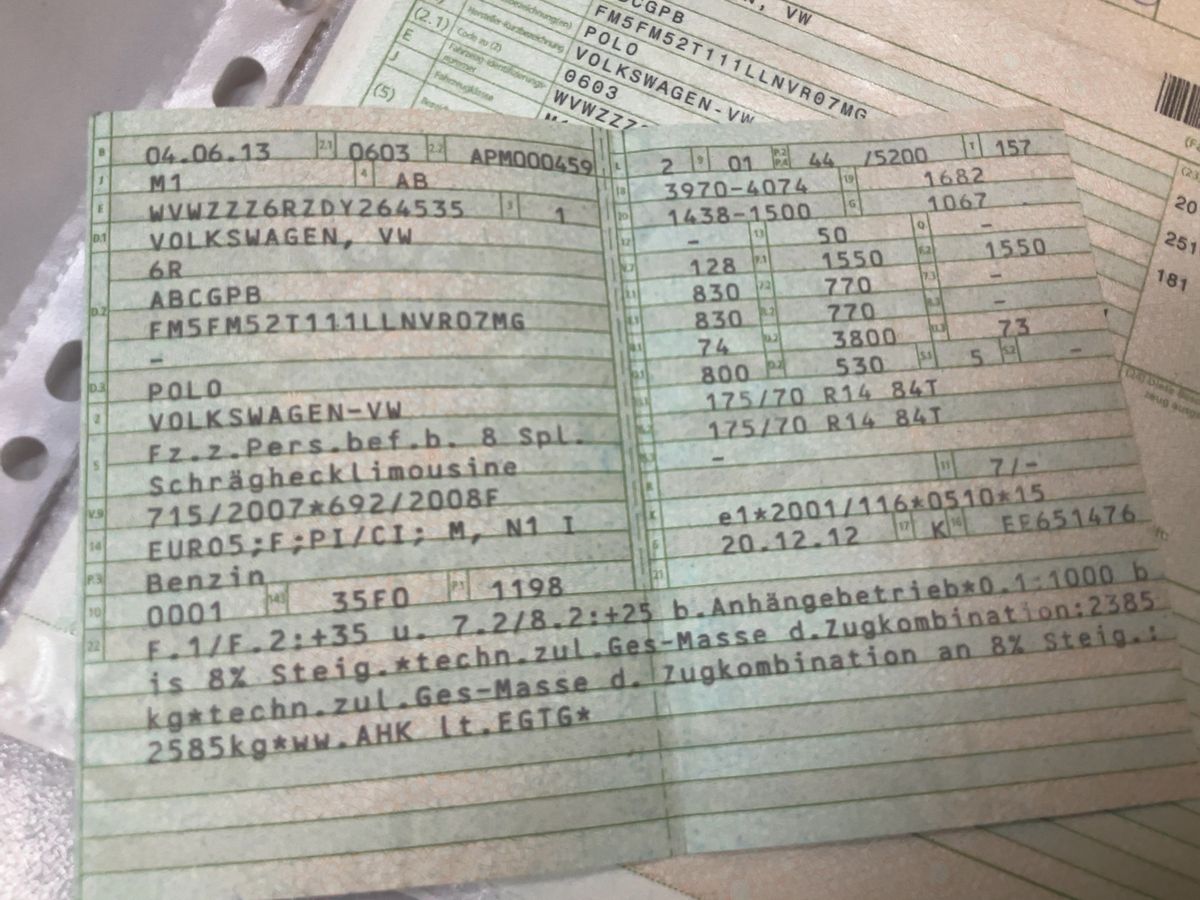 (2.1)
E
J
(5)
Hersteller-Kurzbezeichnung
Code zu (2)
Fahrzeugklasse
BCGPB
FM5FM52T111LLNVR07MG
POLO
VOLKSWAGEN-VW
0603
WVWZZZ
, VW
20
251
181
B 04.06.13 2.1 0603 2.2 APM000459
J M1 4 AB
E WVWZZZ6RZDY264535 3 1
D.1 VOLKSWAGEN, VW
6R
D.2 ABCGPB
FM5FM52T111LLNVR07MG
–
D.3 POLO
2 VOLKSWAGEN-VW
5 Fz.z.Pers.bef.b. 8 Spl.
Schräghecklimousine
V.9 715/2007*692/2008F
14 EURO5;F;PI/CI; M, N1 I
P.3 Benzin
10 0001 14.1 35F0 P.1 1198
L 2 9 01 P.2 P.4 44 /5200 T 157
18 3970-4074 19 1682
20 1438-1500 G 1067
12 – 13 50 Q –
V.7 128 F.1 1550 F.2 1550
7.1 830 7.2 770 7.3 –
8.1 830 8.2 770 8.3 –
U.1 74 U.2 3800 U.3 73
O.1 800 O.2 530 S.1 5 S.2 –
15.1 175/70 R14 84T
15.2 175/70 R14 84T
15.3 –
R 11 7/-
K e1*2001/116*0510*15
6 20.12.12 17 K 16 EF651476
21
22 F.1/F.2:+35 u. 7.2/8.2:+25 b.Anhängebetrieb*O.1:1000 b
is 8% Steig.*techn.zul.Ges-Masse d.Zugkombination:2385
kg*techn.zul.Ges-Masse d. Zugkombination an 8% Steig.:
2585kg*ww.AHK lt.EGTG*